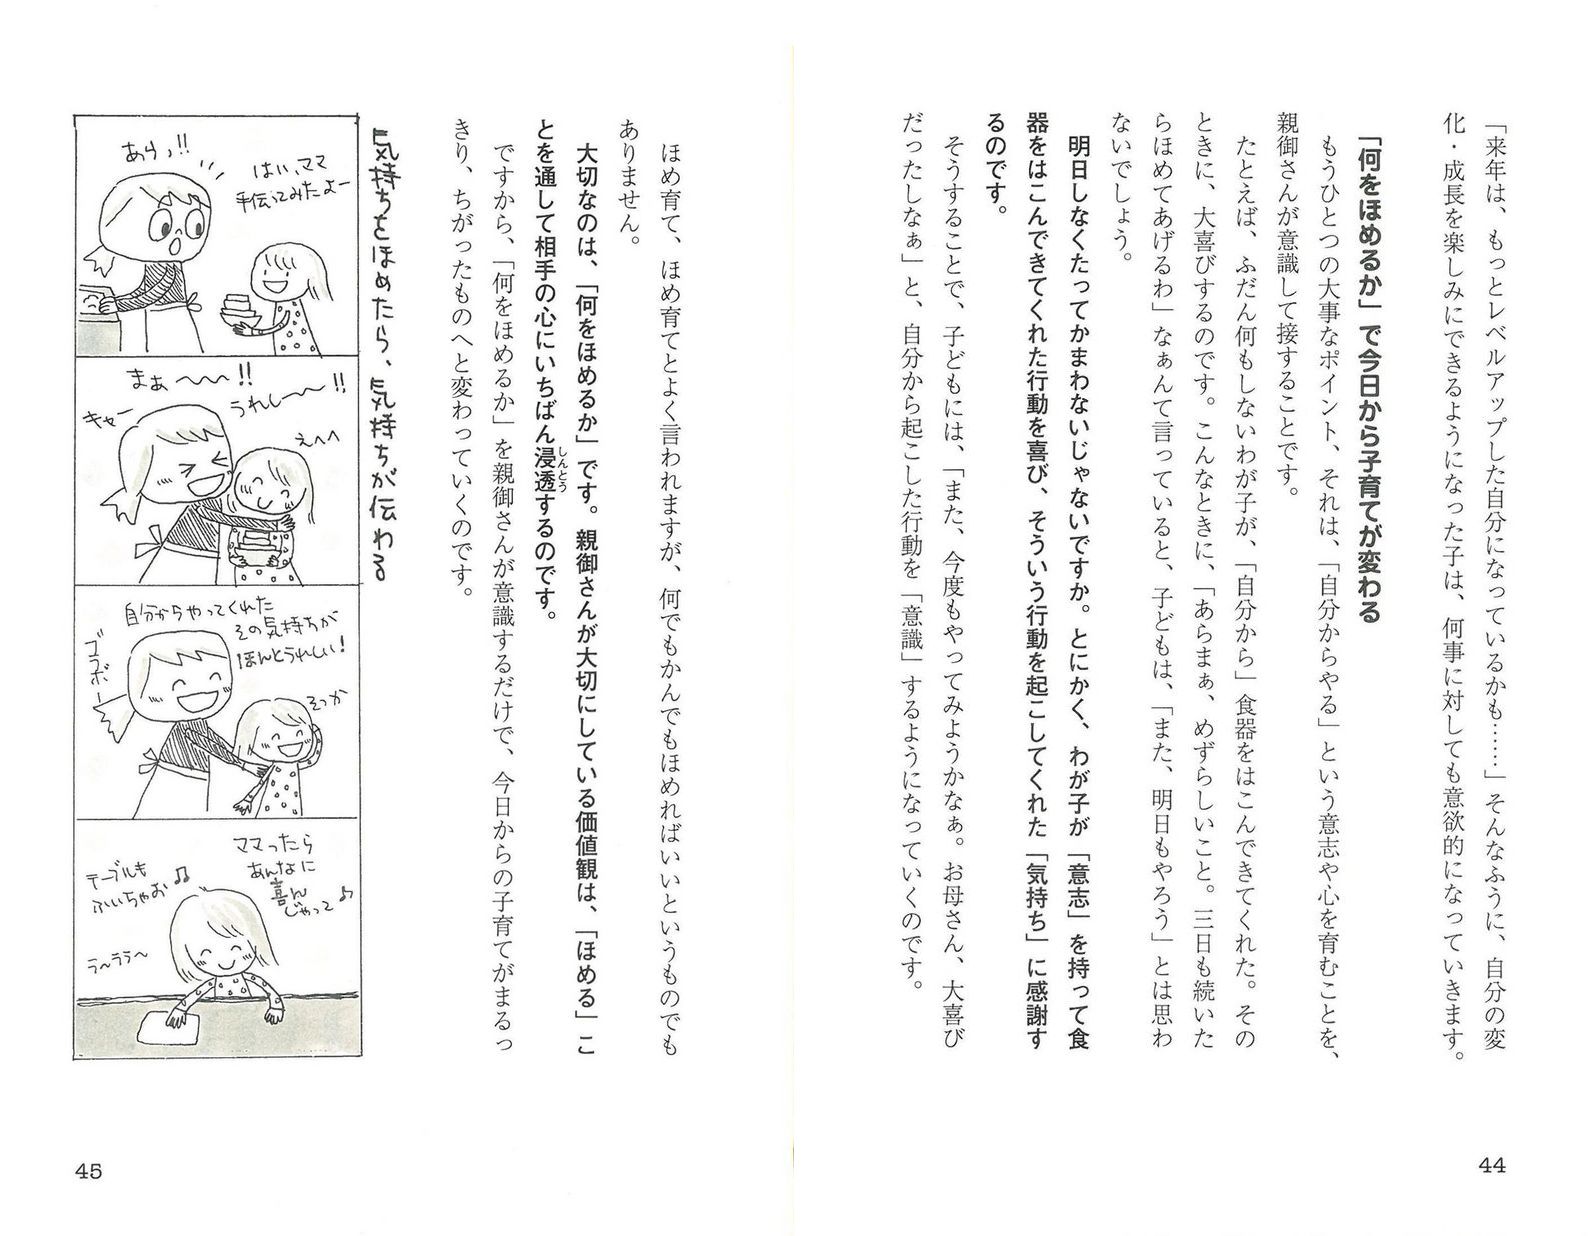 「来年は、もっとレベルアップした自分になっているかも……」そんなふうに、自分の変
化・成長を楽しみにできるようになった子は、何事に対しても意欲的になっていきます。
「何をほめるか」で今日から子育てが変わる
もうひとつの大事なポイント、それは、「自分からやる」という意志や心を育むことを、
親御さんが意識して接することです。
たとえば、ふだん何もしないわが子が、「自分から」食器をはこんできてくれた。その
ときに、大喜びするのです。こんなときに、「あらまぁ、めずらしいこと。三日も続いた
らほめてあげるわ」なぁんて言っていると、子どもは、「また、明日もやろう」とは思わ
ないでしょう。
明日しなくたってかまわないじゃないですか。とにかく、わが子が「意志」を持って食
器をはこんできてくれた行動を喜び、そういう行動を起こしてくれた「気持ち」に感謝す
るのです。
そうすることで、子どもには、「また、今度もやってみようかなぁ。お母さん、大喜び
だったしなぁ」と、自分から起こした行動を「意識」するようになっていくのです。
44
ほめ育て、ほめ育てとよく言われますが、何でもかんでもほめればいいというものでも
ありません。
大切なのは、「何をほめるか」です。親御さんが大切にしている価値観は、「ほめる」こ
とを通して相手の心にいちばん浸透するのです。
しんとう
ですから、「何をほめるか」を親御さんが意識するだけで、今日からの子育てがまるっ
きり、ちがったものへと変わっていくのです。
気持ちをほめたら、気持ちが伝わる
はい、ママ
手伝ってみたよー
あらっ!!
うれしー〜〜!!
まぁ〜〜〜!!
キャー
えへへ
自分からやってくれた
その気持ちが
ほんとうれしい!
そっか
ママったら
あんなに
喜ん
じゃって♪
テーブルも
ふいちゃお♫
ら〜ララ〜
45